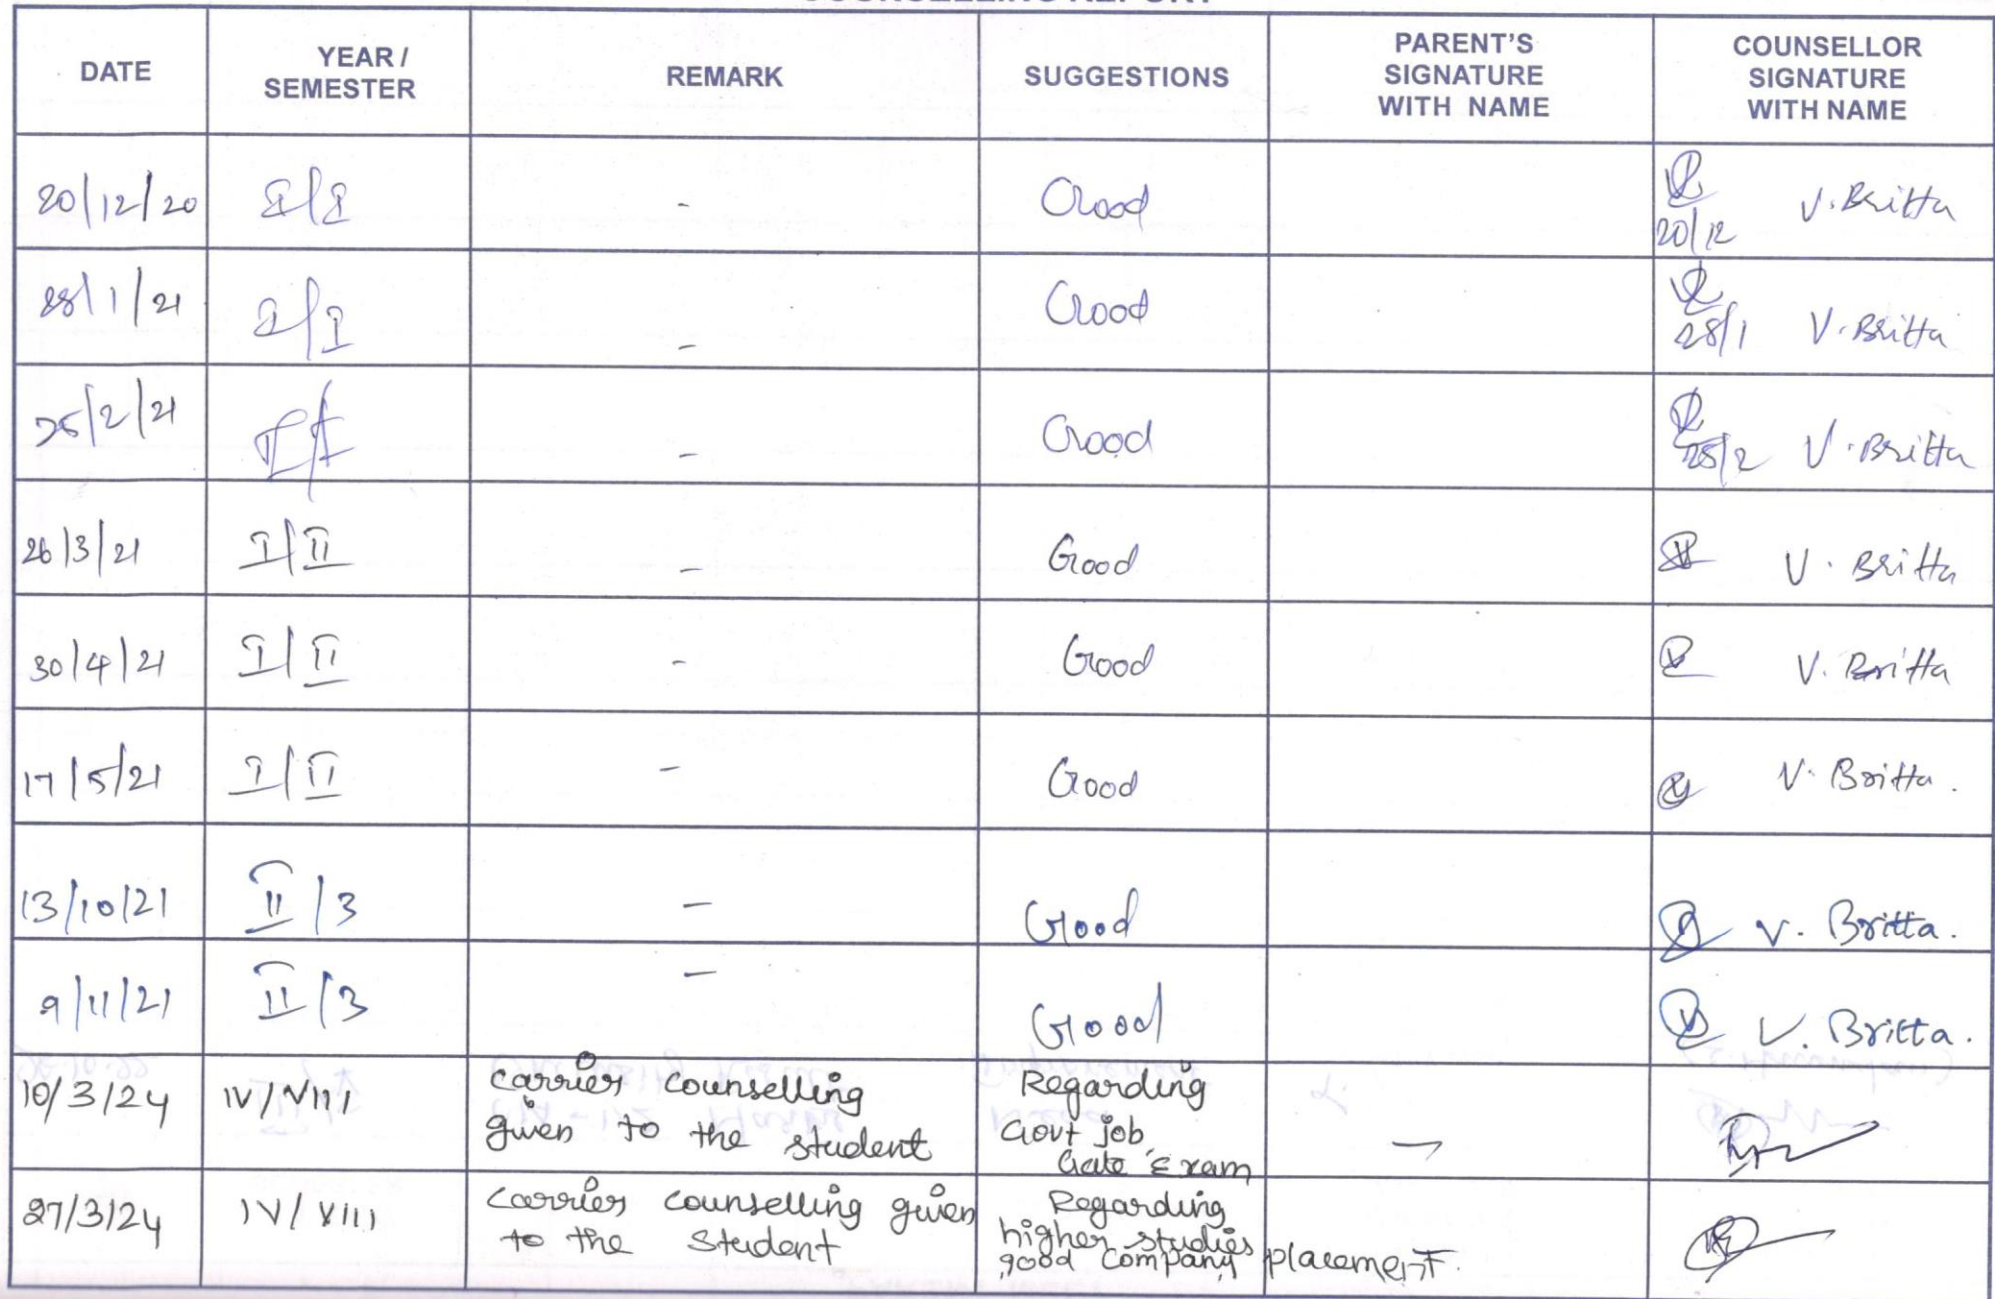 COUNSELLING REPORT
DATE YEAR / SEMESTER REMARK SUGGESTIONS PARENT'S SIGNATURE WITH NAME COUNSELLOR SIGNATURE WITH NAME
20/12/20 I/I - Good 20/12 V. Britta
28/1/21 I/I - Good 28/1 V. Britta
25/2/21 I/I - Good 25/2 V. Britta
26/3/21 I/II - Good V. Britta
30/4/21 I/II - Good V. Britta
17/5/21 I/II - Good V. Britta.
13/10/21 II/3 - Good V. Britta.
9/11/21 II/3 - Good V. Britta.
10/3/24 IV/VIII carrier counselling given to the student Regarding Govt job Gate Exam -
27/3/24 IV/VIII carrier counselling given to the student Regarding higher studies good company placement.